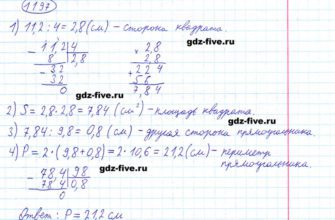 1197
1) 11,2 : 4 = 2,8 (см) – сторона квадрата.
11,2 4
8 2,8
32
32
0
2,8
2,8
224
56
7,84
gdz-five.ru
gdz-five.ru
2) S = 2,8 · 2,8 = 7,84 (см²) – площадь квадрата.
gdz-five.ru
3) 7,84 : 9,8 = 0,8 (см) – другая сторона прямоугольника.
4) P = 2 · (9,8 + 0,8) = 2 · 10,6 = 21,2 (см) – периметр
прямоугольника.
78,4 98
78 4 0,8
0
gdz-five.ru
gdz-five.ru
Ответ: P = 21,2 см